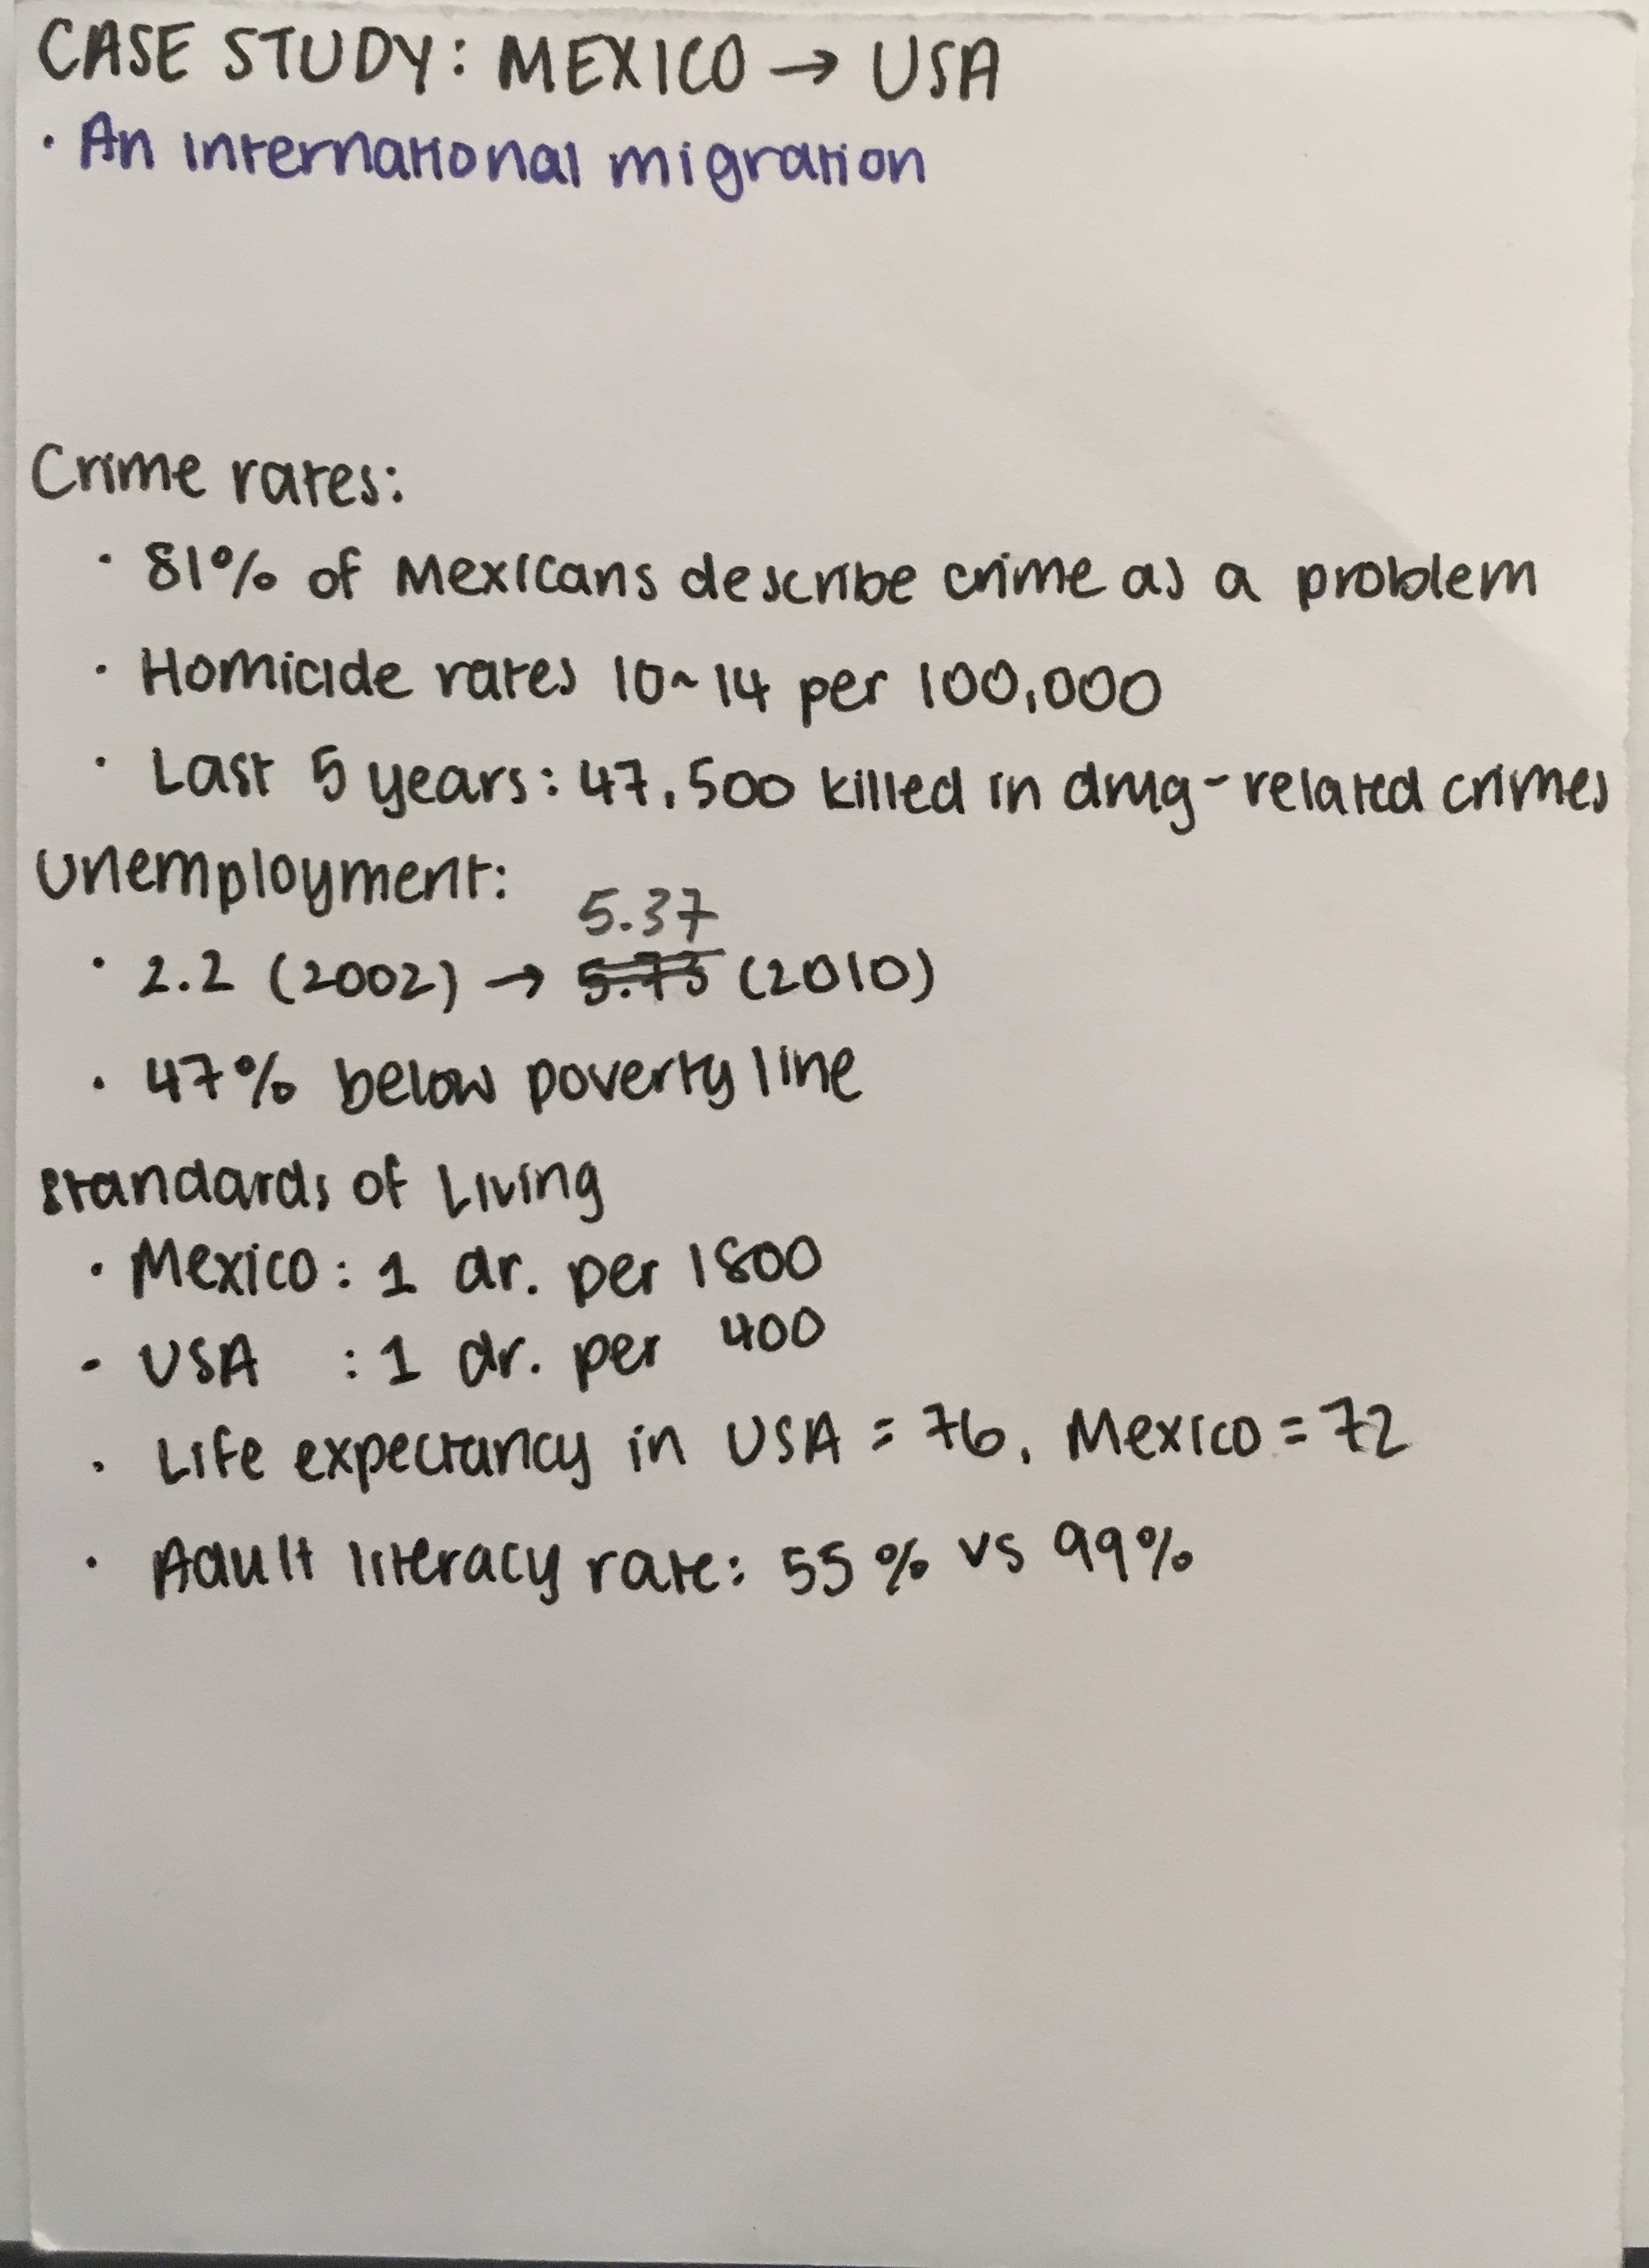 CASE STUDY: MEXICO → USA
· An international migration
Crime rates:
· 81% of Mexicans describe crime as a problem
· Homicide rates 10~14 per 100,000
· Last 5 years: 47,500 killed in drug-related crimes
Unemployment:
5.37
· 2.2 (2002) → 5.73 (2010)
· 47% below poverty line
Standards of Living
· Mexico: 1 dr. per 1800
- USA : 1 dr. per 400
· Life expectancy in USA = 76, Mexico = 72
· Adult literacy rate: 55% vs 99%